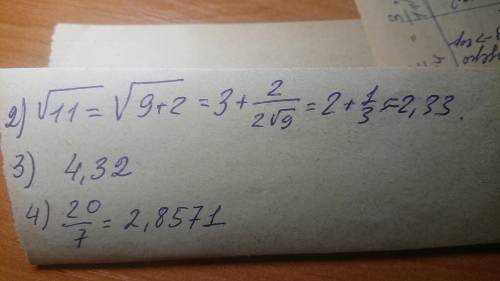 2) √11 = √9+2 = 3 + 2/2√9 = 2 + 1/3 = 2,33.
3) 4,32
4) 20/7 = 2,8571